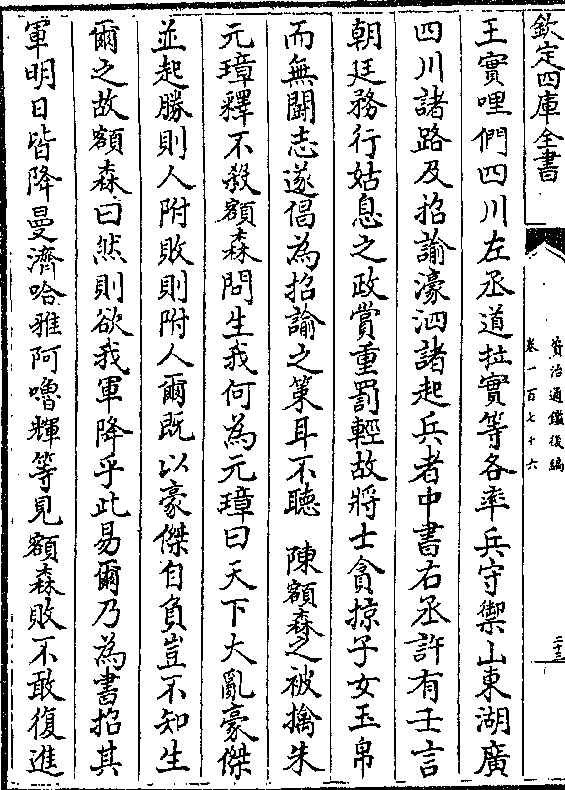 欽定四庫全書
資治通鑑後編
卷一百七十六
二十三
王實哩們四川左丞道拉實等各率兵守禦山東湖廣
四川諸路及招諭濠泗諸起兵者中書右丞許有壬言
朝廷務行姑息之政賞重罰輕故將士貪掠子女玉帛
而無鬭志遂倡為招諭之策耳不聽　陳額森之被擒朱
元璋釋不殺額森問生我何為元璋曰天下大亂豪傑
並起勝則人附敗則附人爾既以豪傑自負豈不知生
爾之故額森曰然則欲我軍降乎此易爾乃為書招其
軍明日皆降曼濟哈雅阿嚕輝等見額森敗不敢復進